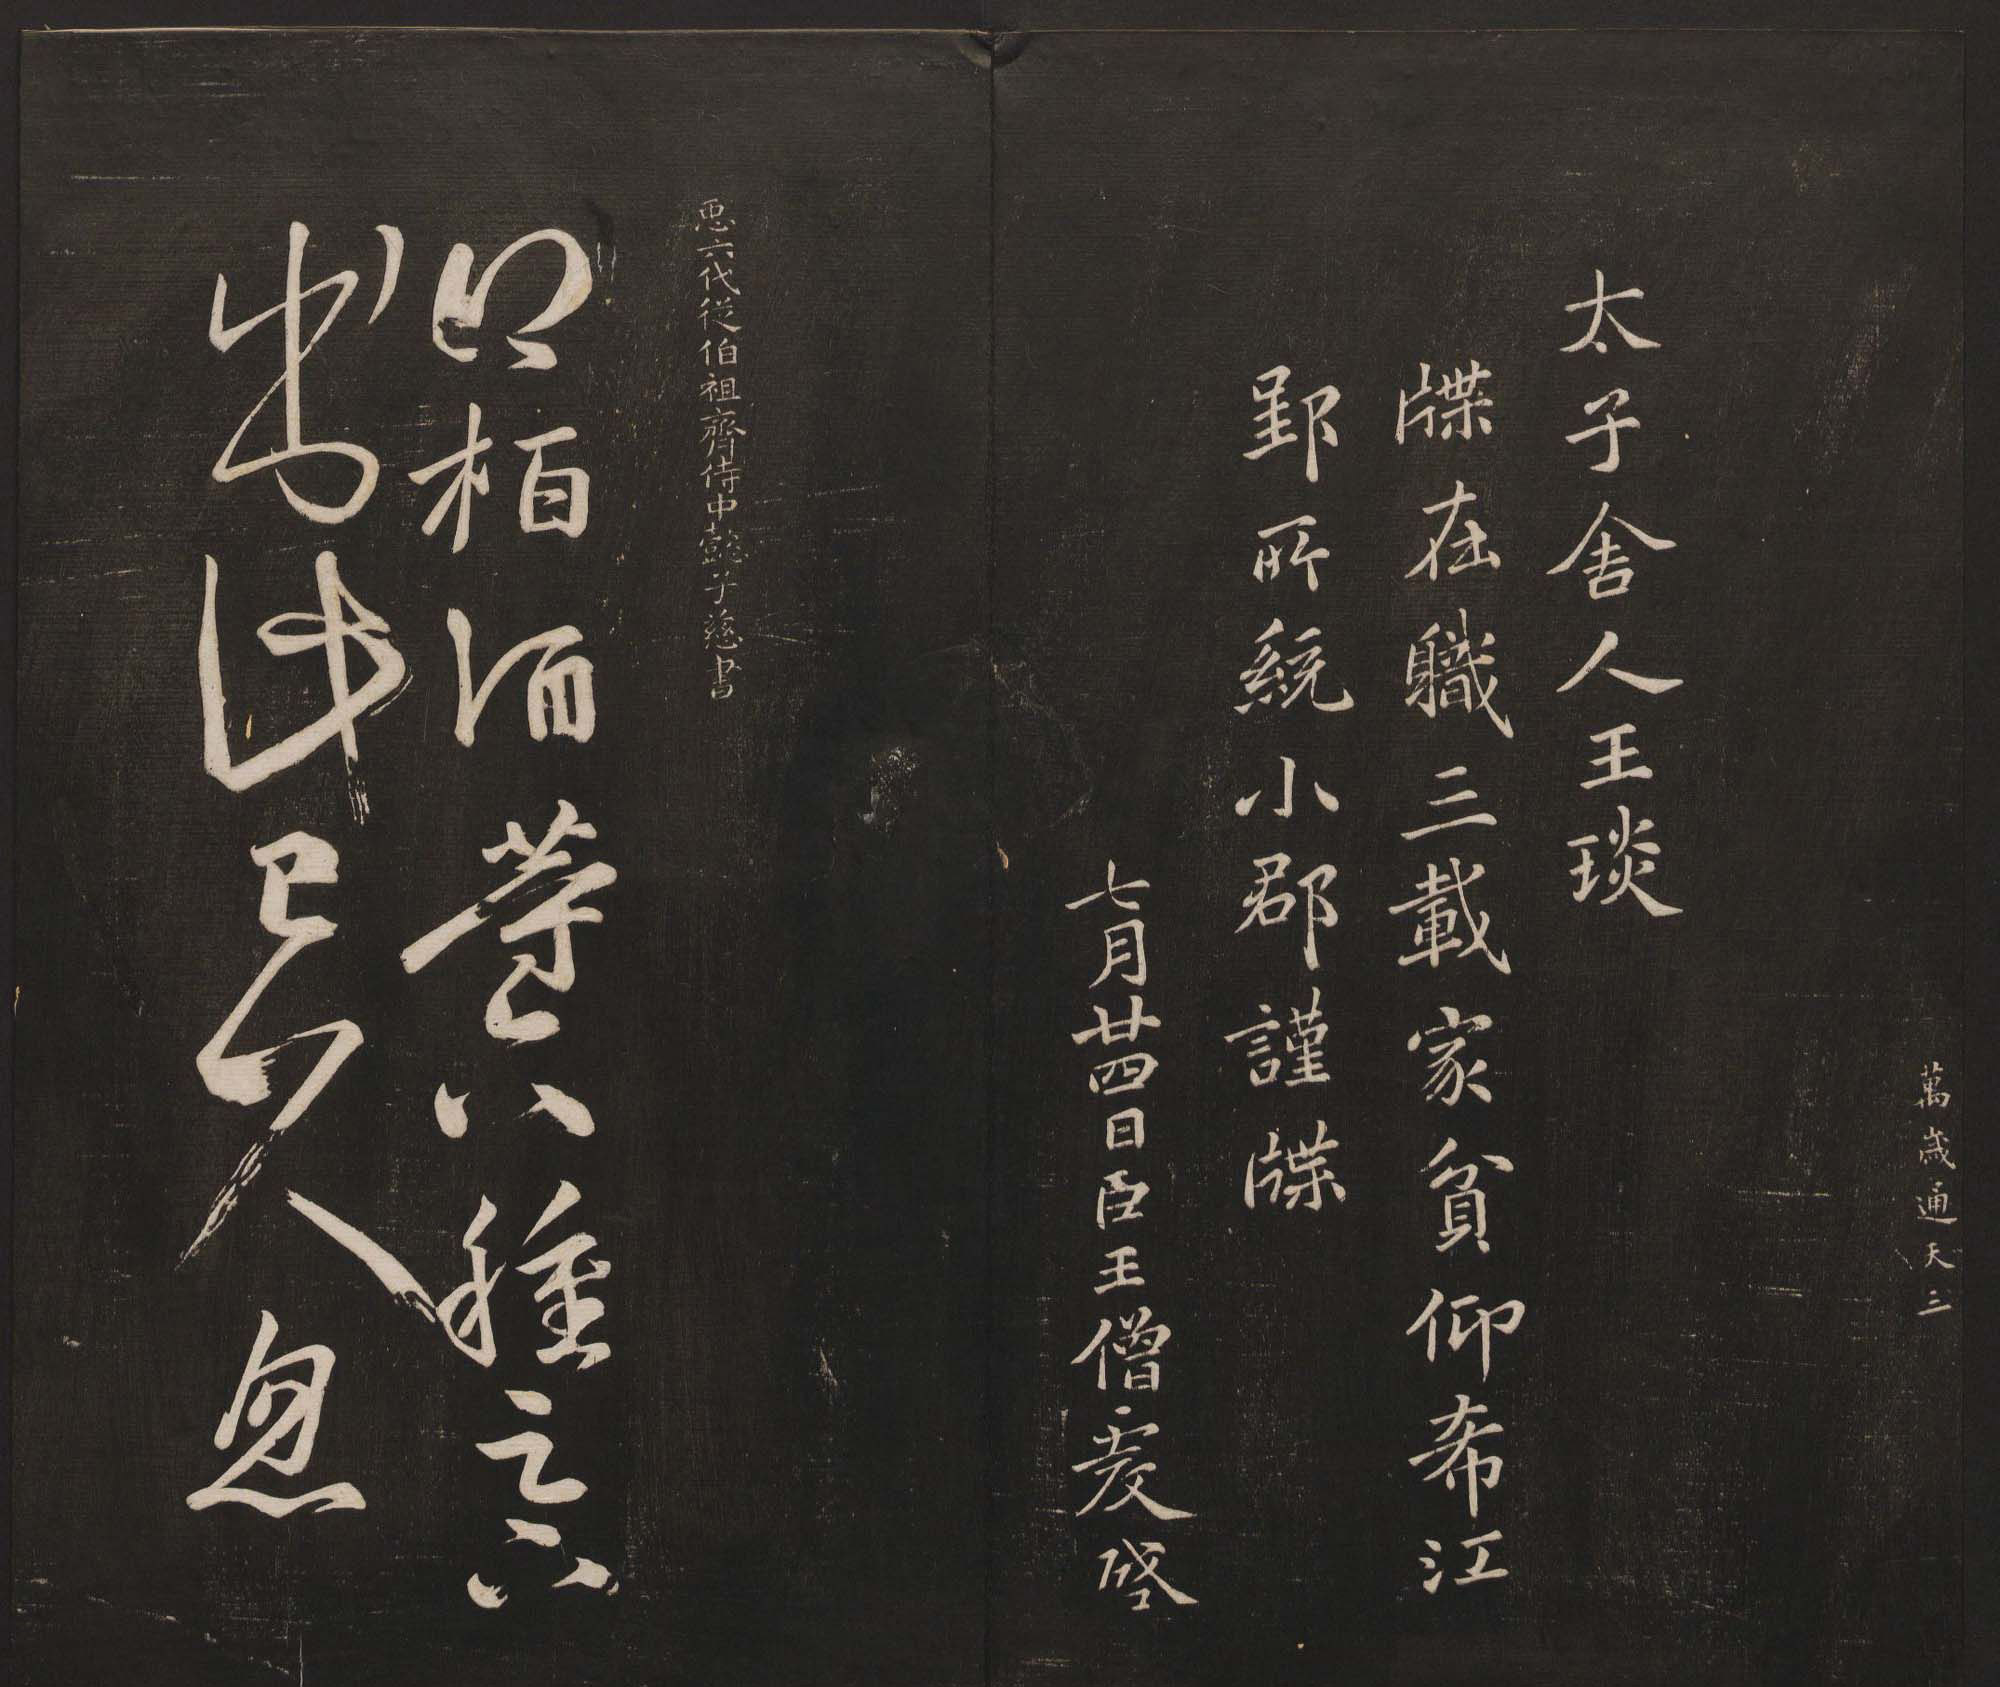 萬歲通天 三
太子舍人王琰
牒在職三載家貧仰希江
郢所統小郡謹牒
七月廿四日臣王僧虔啓
𢘑六代從伯祖齊侍中懿子慈書
得柏酒等六種足下
出此已久忽